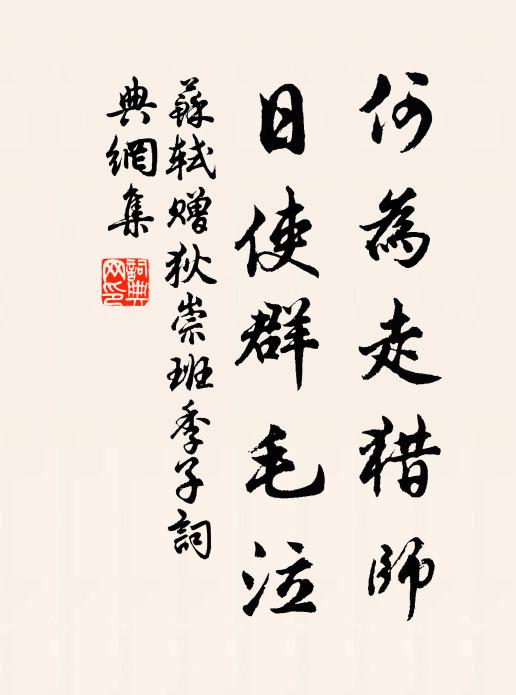 何為走猎師
日使群毛泣
蘇軾赠狄崇班季子詞
典網集
詞典
网印